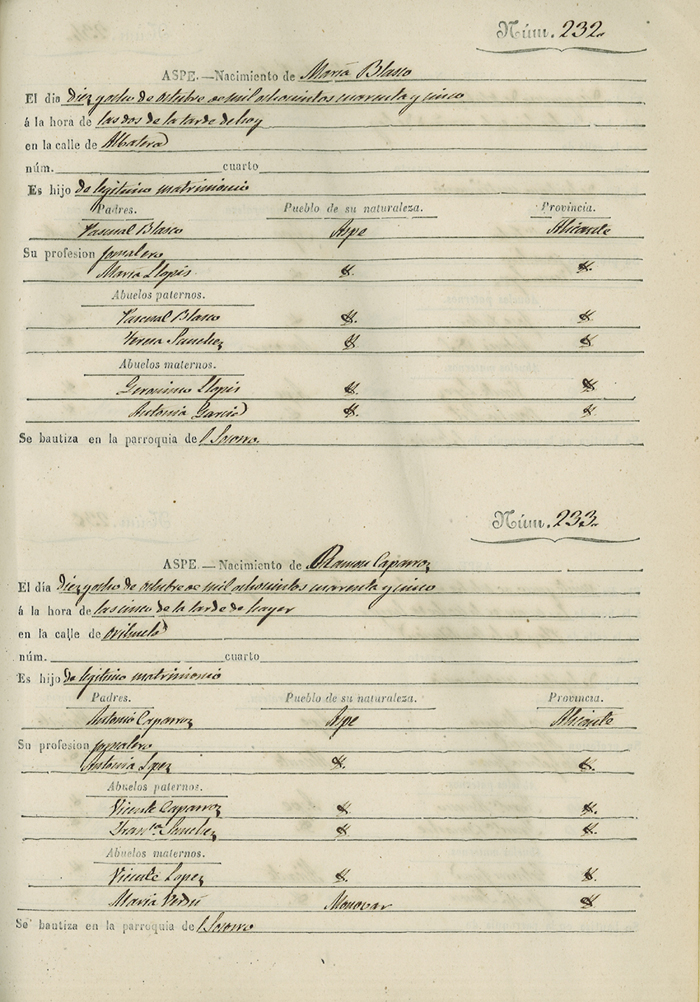 Núm. 232.
ASPE.—Nacimiento de María Blasco
El dia diez y ocho de octubre de mil ochocientos cuarenta y cinco
á la hora de las dos de la tarde de hoy
en la calle de Albatera
núm. cuarto
Es hijo de legitimo matrimonio
Padres. Pueblo de su naturaleza. Provincia.
Pascual Blasco Aspe Alicante
Su profesion jornalero
Maria Llopis &. &.
Abuelos paternos.
Pascual Blasco &. &
Teresa Sanchez & &
Abuelos maternos.
Geronimo Llopis &. &
Antonia Garcia &. &
Se bautiza en la parroquia del Socorro.
Núm. 233.
ASPE.—Nacimiento de Ramon Caparroz
El día diez y ocho de octubre de mil ochocientos cuarenta y cinco
á la hora de las cinco de la tarde de hayer
en la calle de orihuela
núm. cuarto
Es hijo de legitimo matrimonio
Padres. Pueblo de su naturaleza. Provincia.
Antonio Caparroz Aspe Alicante
Su profesion jornalero
Antonia Lopez &. &.
Abuelos paternos.
Vicente Caparroz & &.
Fran.ca Sanchez & &
Abuelos maternos.
Vicente Lopez & &.
María Verdú Monovar &
Se bautiza en la parroquia del Socorro